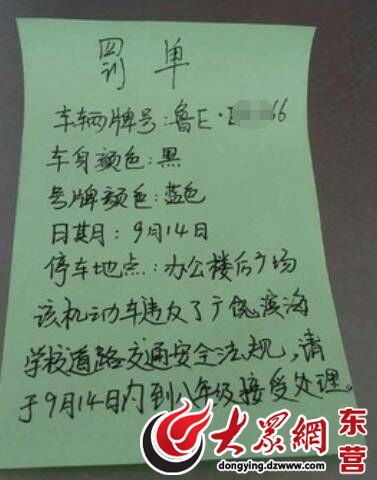 罚单
车辆牌号:鲁E·E 66
车身颜色:黑
号牌颜色:蓝色
日期:9月14日
停车地点:办公楼后广场
该机动车违反了广饶滨海
学校道路交通安全法规,请
于9月14日内到八年级接受处理。
大众網 东营
dongying.dzwww.com